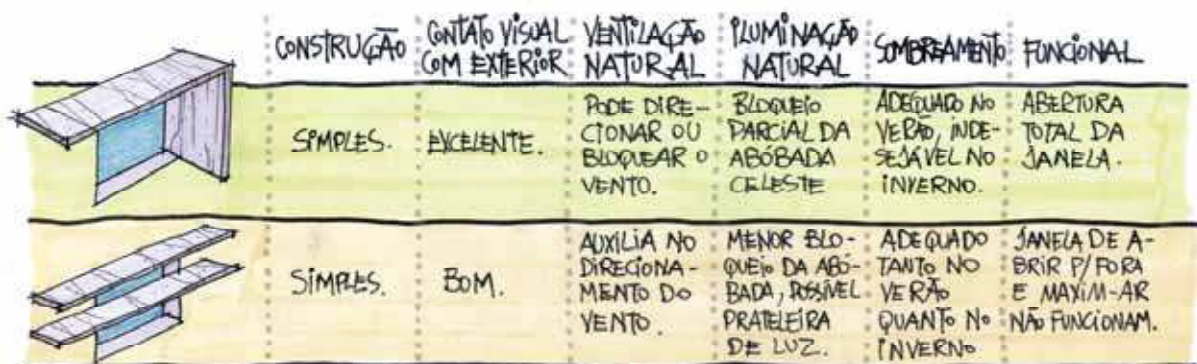 CONSTRUÇÃO
CONTATO VISUAL
COM EXTERIOR
VENTILAÇÃO
NATURAL
ILUMINAÇÃO
NATURAL
SOMBREAMENTO
FUNCIONAL
SIMPLES.
EXCELENTE.
PODE DIRE-
CIONAR OU
BLOQUEAR O
VENTO.
BLOQUEIO
PARCIAL DA
ABÓBADA
CELESTE
ADEQUADO NO
VERÃO, INDE-
SEJÁVEL NO
INVERNO.
ABERTURA
TOTAL DA
JANELA.
SIMPLES.
BOM.
AUXILIA NO
DIRECIONA-
MENTO DO
VENTO.
MENOR BLO-
QUEIO DA ABÓ-
BADA, POSSÍVEL
PRATELEIRA
DE LUZ.
ADEQUADO
TANTO NO
VERÃO
QUANTO NO
INVERNO
JANELA DE A-
BRIR P/ FORA
E MAXIM-AR
NÃO FUNCIONAM.